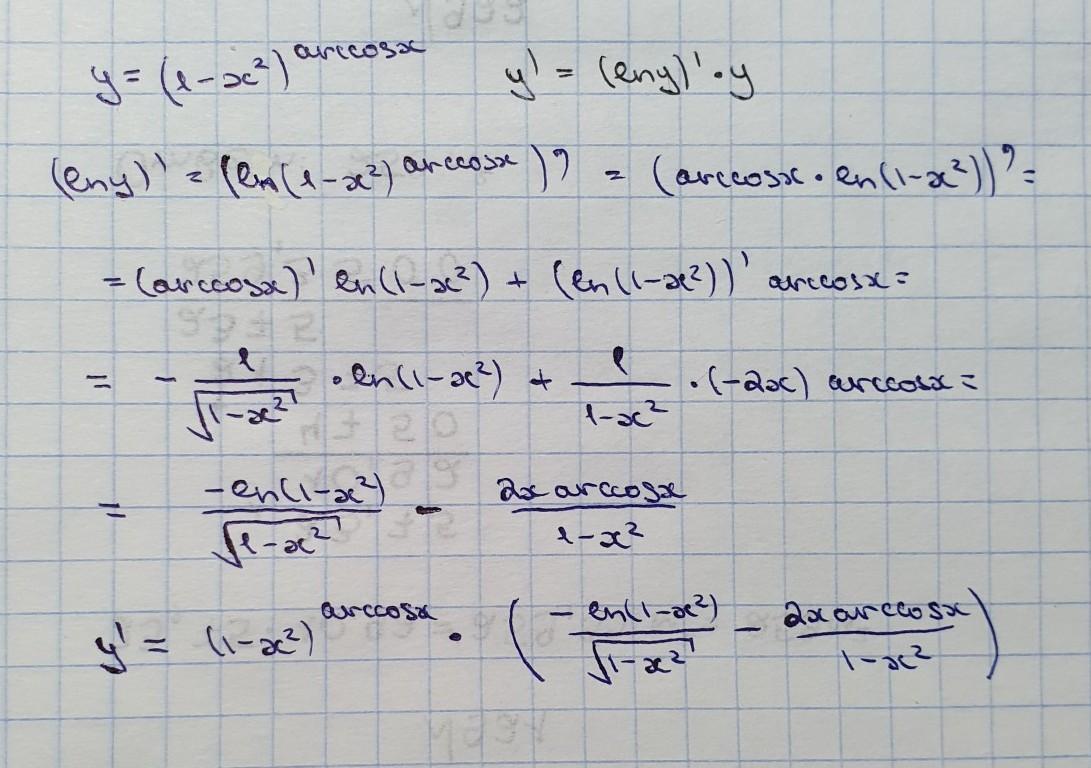 y = (1-x²)^arccosx    y' = (lny)'·y
(lny)' = (ln(1-x²)^arccosx)' = (arccosx·ln(1-x²))' =
= (arccosx)' ln(1-x²) + (ln(1-x²))' arccosx =
= - 1/√(1-x²) · ln(1-x²) + 1/(1-x²) · (-2x) arccosx =
= -ln(1-x²)/√(1-x²) - 2x arccosx/(1-x²)
y' = (1-x²)^arccosx · (- ln(1-x²)/√(1-x²) - 2x arccosx/(1-x²))